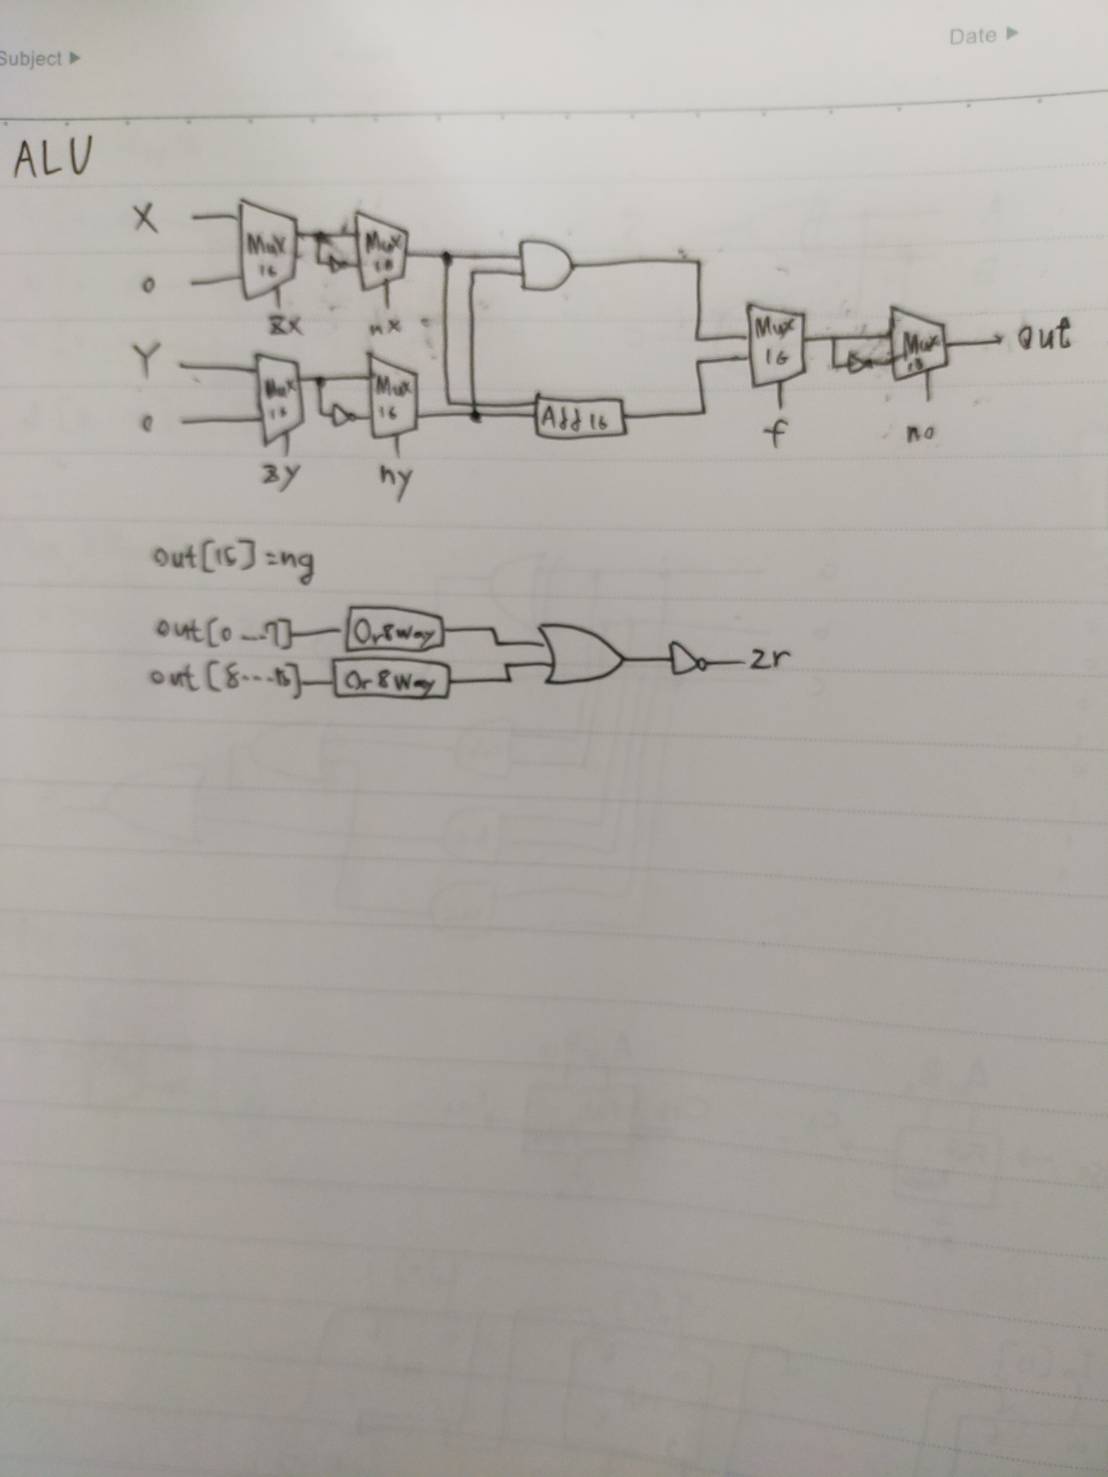 Subject ▶
Date ▶
ALU
X
0
Mux 16
zx
Mux 16
nx
Y
0
Mux 16
zy
Mux 16
ny
Add 16
Mux 16
f
Mux 16
no
out
out[15]=ng
out[0...7]
Or8Way
out[8...15]
Or8Way
zr